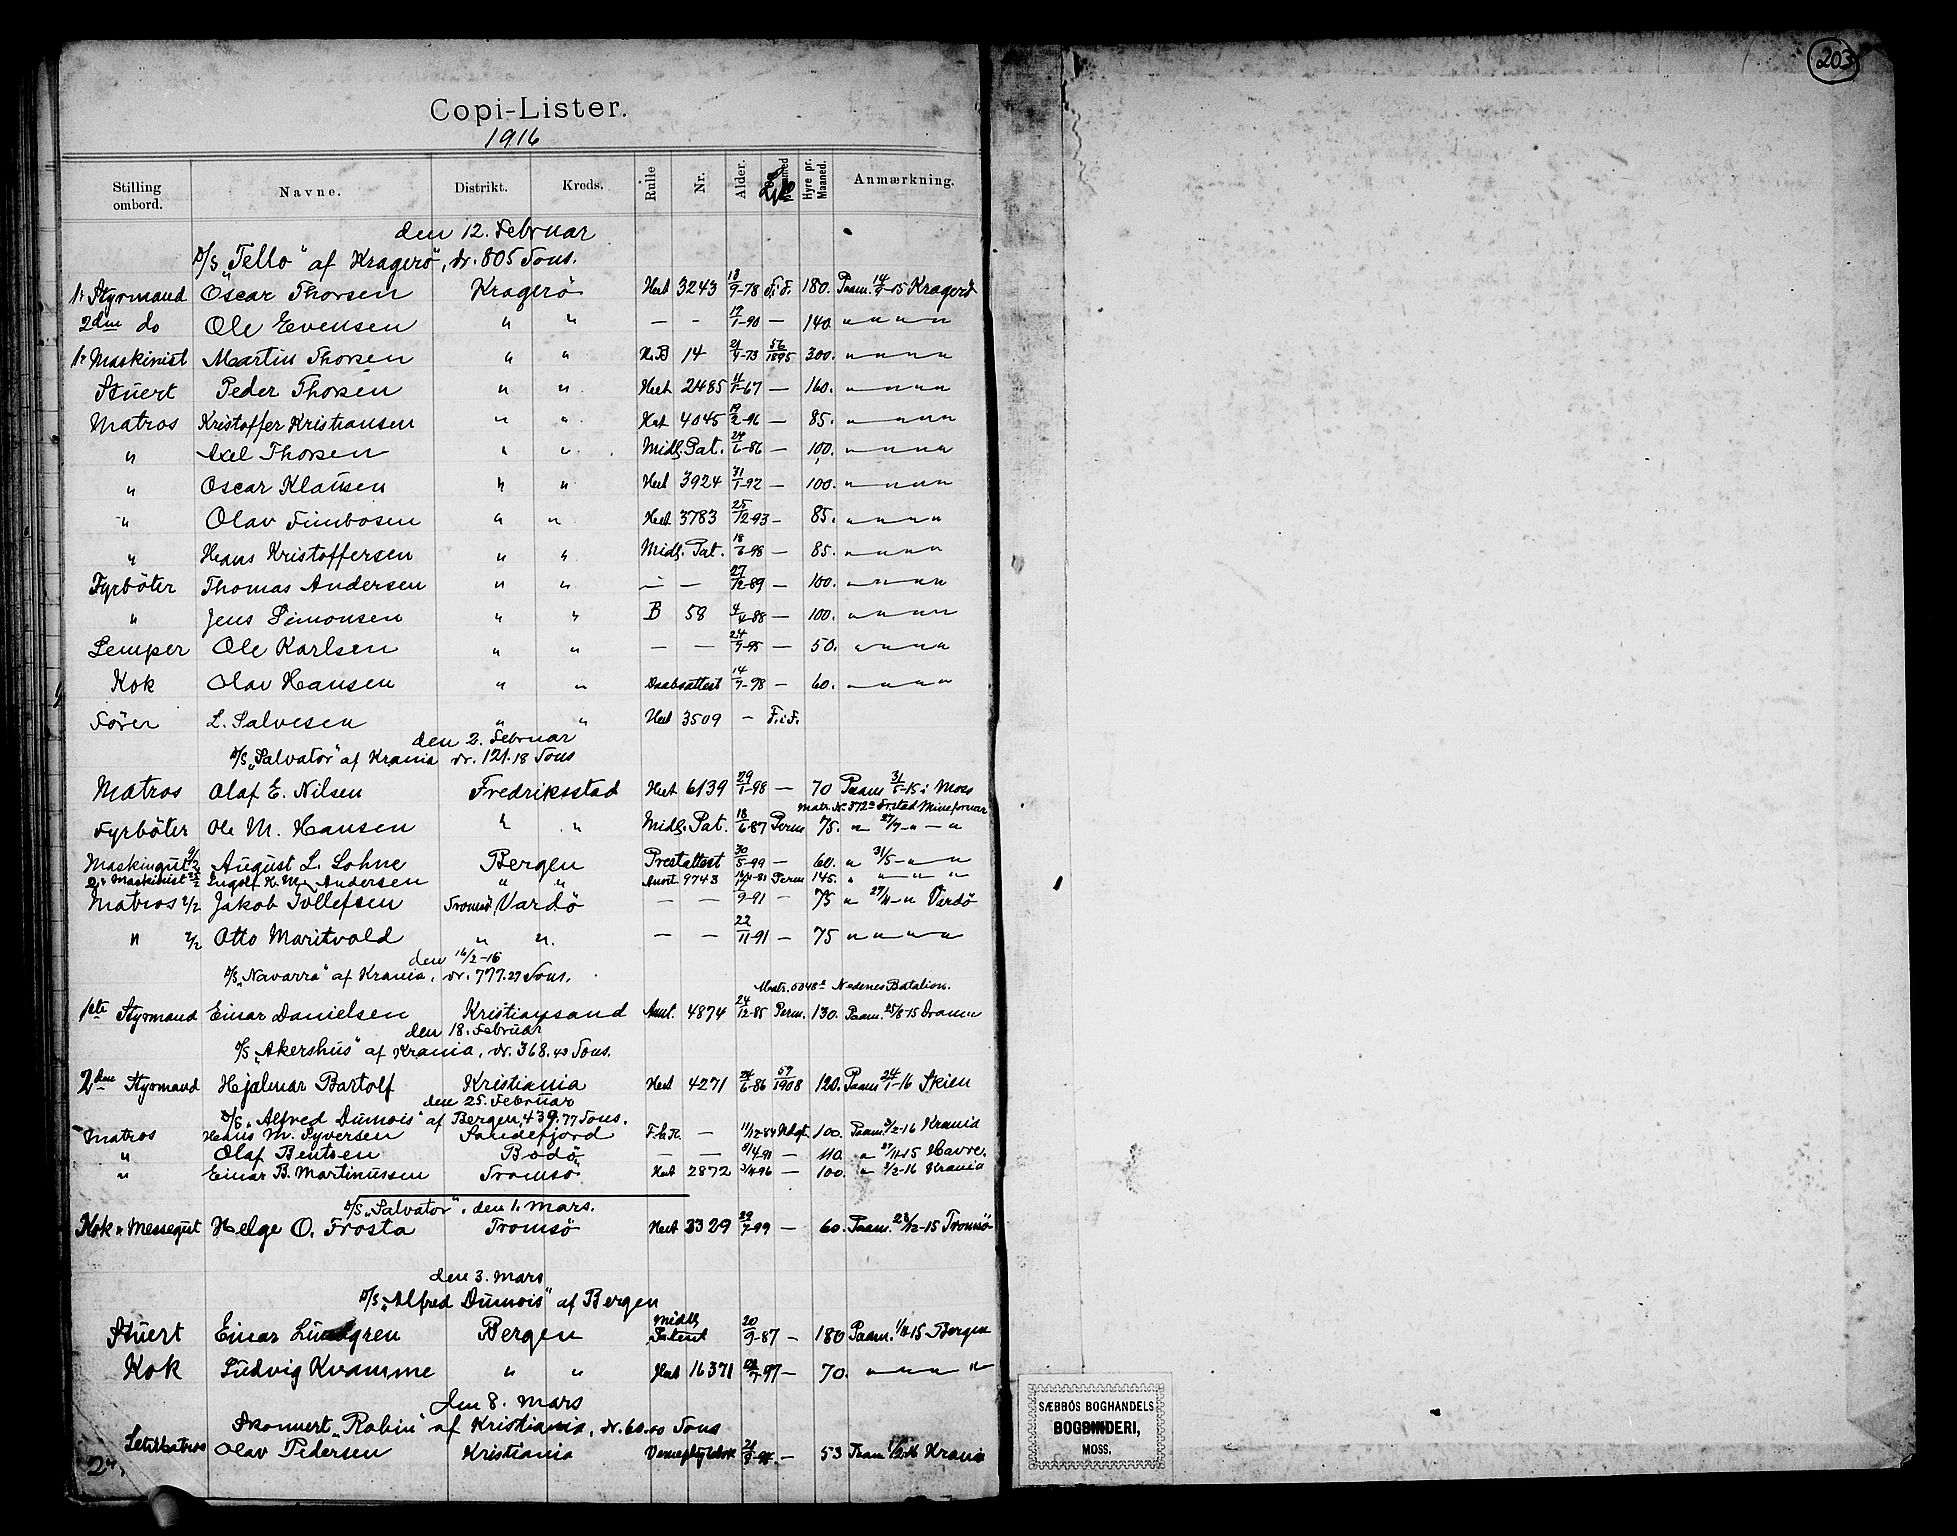 203
Copi-Lister.
1916
Stilling ombord. Navne. Distrikt. Kreds. Rulle Nr. Alder. Hyre pr. Maaned. Anmærkning.
den 12. Februar
D/S „Tello“ af Kragerö, dr. 805 Tons.
1ste Styrmand Oscar Thorsen Kragerö Hert 3243 18/9-78 F.i.F. 180. Paam. 14/9-15 Kragerö
2den do Ole Evensen " " — - 17/1-90 — 140 " " " "
1ste Maskinist Martin Thorsen " " H.B 14 21/4-73 56/1895 300. " " " "
Stuert Peder Thorsen " " Hert 2485 11/1-67 — 160. " " " "
Matros Kristoffer Kristiansen " " Hert 4045 19/2-96 — 85. " " " "
" Axel Thorsen " " Midl. Pat. 24/6-86 — 100. " " " "
" Oscar Klausen " " Hert 3924 31/1-92 — 100. " " " "
" Olav Simbosen " " Hert 3783 25/12-93 — 85. " " " "
" Hans Kristoffersen " " Midl. Pat. 18/6-98 — 85. " " " "
Fyrböter Thomas Andersen " " — — 27/12-89 — 100. " " " "
" Jens Simonsen " " B 58 4/4-88 — 100. " " " "
Lemper Ole Karlsen " " — — 24/9-95 — 50. " " " "
Kok Olav Hansen " " Daabsattest 14/7-98 — 60. " " " "
Förer L. Salvesen " " Hert 3509 — F.i.F.
den 2. Februar
D/S „Salvator“ af Krania dr. 121.18 Tons
Matros Olaf E. Nilsen Fredriksstad Hert 6139 29/1-98 — 70 Paam 31/5-15 i Moss
Matr. Nr. 372a Frstad Mineforsvar
Fyrböter Ole M. Hansen " " Midl. Pat. 18/6-87 Perm 75. " 27/7 " — "
Maskingut August L. Lohne Bergen Prestattest 30/5-99 — 60. " 31/5 — " — "
2. Maskinist Ingolf K. M. Andersen " " 9743 Perm 145. " " " "
Matros 2/2 Jakob Tollefsen Tromsö Vardö — — 17/9-91 — 75 " 27/11 — " Vardö
" 2/2 Otto Maritvold " " — — 22/11-91 — 75 " " " "
den 16/2-16
D/S „Navarra“ af Krania, dr. 777.27 Tons.
Matr. Nedenes Batalion.
1ste Styrmand Einar Danielsen Kristiansand Amt. 4874 24/12-85 Perm. 130. Paam. 25/8-15 Dramn
den 18. Februar
D/S „Akershus“ af Krania, dr. 368.49 Tons.
2den Styrmand Hjalmar Bartolf Kristiania Hert 4271 24/6-86 59/1908 120. Paam 24/1-16 Skien
den 25. Februar
D/S „Alfred Dumois“ af Bergen, 439.77 Tons.
Matros Hans M. Syversen Sandefjord — 11/12-84 Udgt. 100. Paam. 3/2-16 Krania
" Olaf Bentsen Bodö — — 8/4-91 — 110. " 27/11-15 Havre.
" Einar B. Martinussen Tromsö Hert 2872 3/11-96 — 100. " 3/2-16 Krania
D/S „Salvator“, den 1. Mars.
Kok & Messegut Helge O. Frosta Tromsö Hert 3329 29/7-99 — 60. Paam. 23/12-15 Tromsö
den 3. Mars
D/S „Alfred Dumois“ af Bergen
Stuert Einar Lundgren Bergen Midl. Patent 20/9-87 — 180 Paam. 1/11-15 Bergen
Kok Ludvig Kvamme " " Hert 16371 — 70. " " " "
den 8. Mars
Skonnert „Robin“ af Kristiania, dr. 60.00 Tons
Letmatros Olav Pedersen Kristiania — 53 Paam Krania
SÆBBÖS BOGHANDELS
BOGBINDERI,
MOSS.